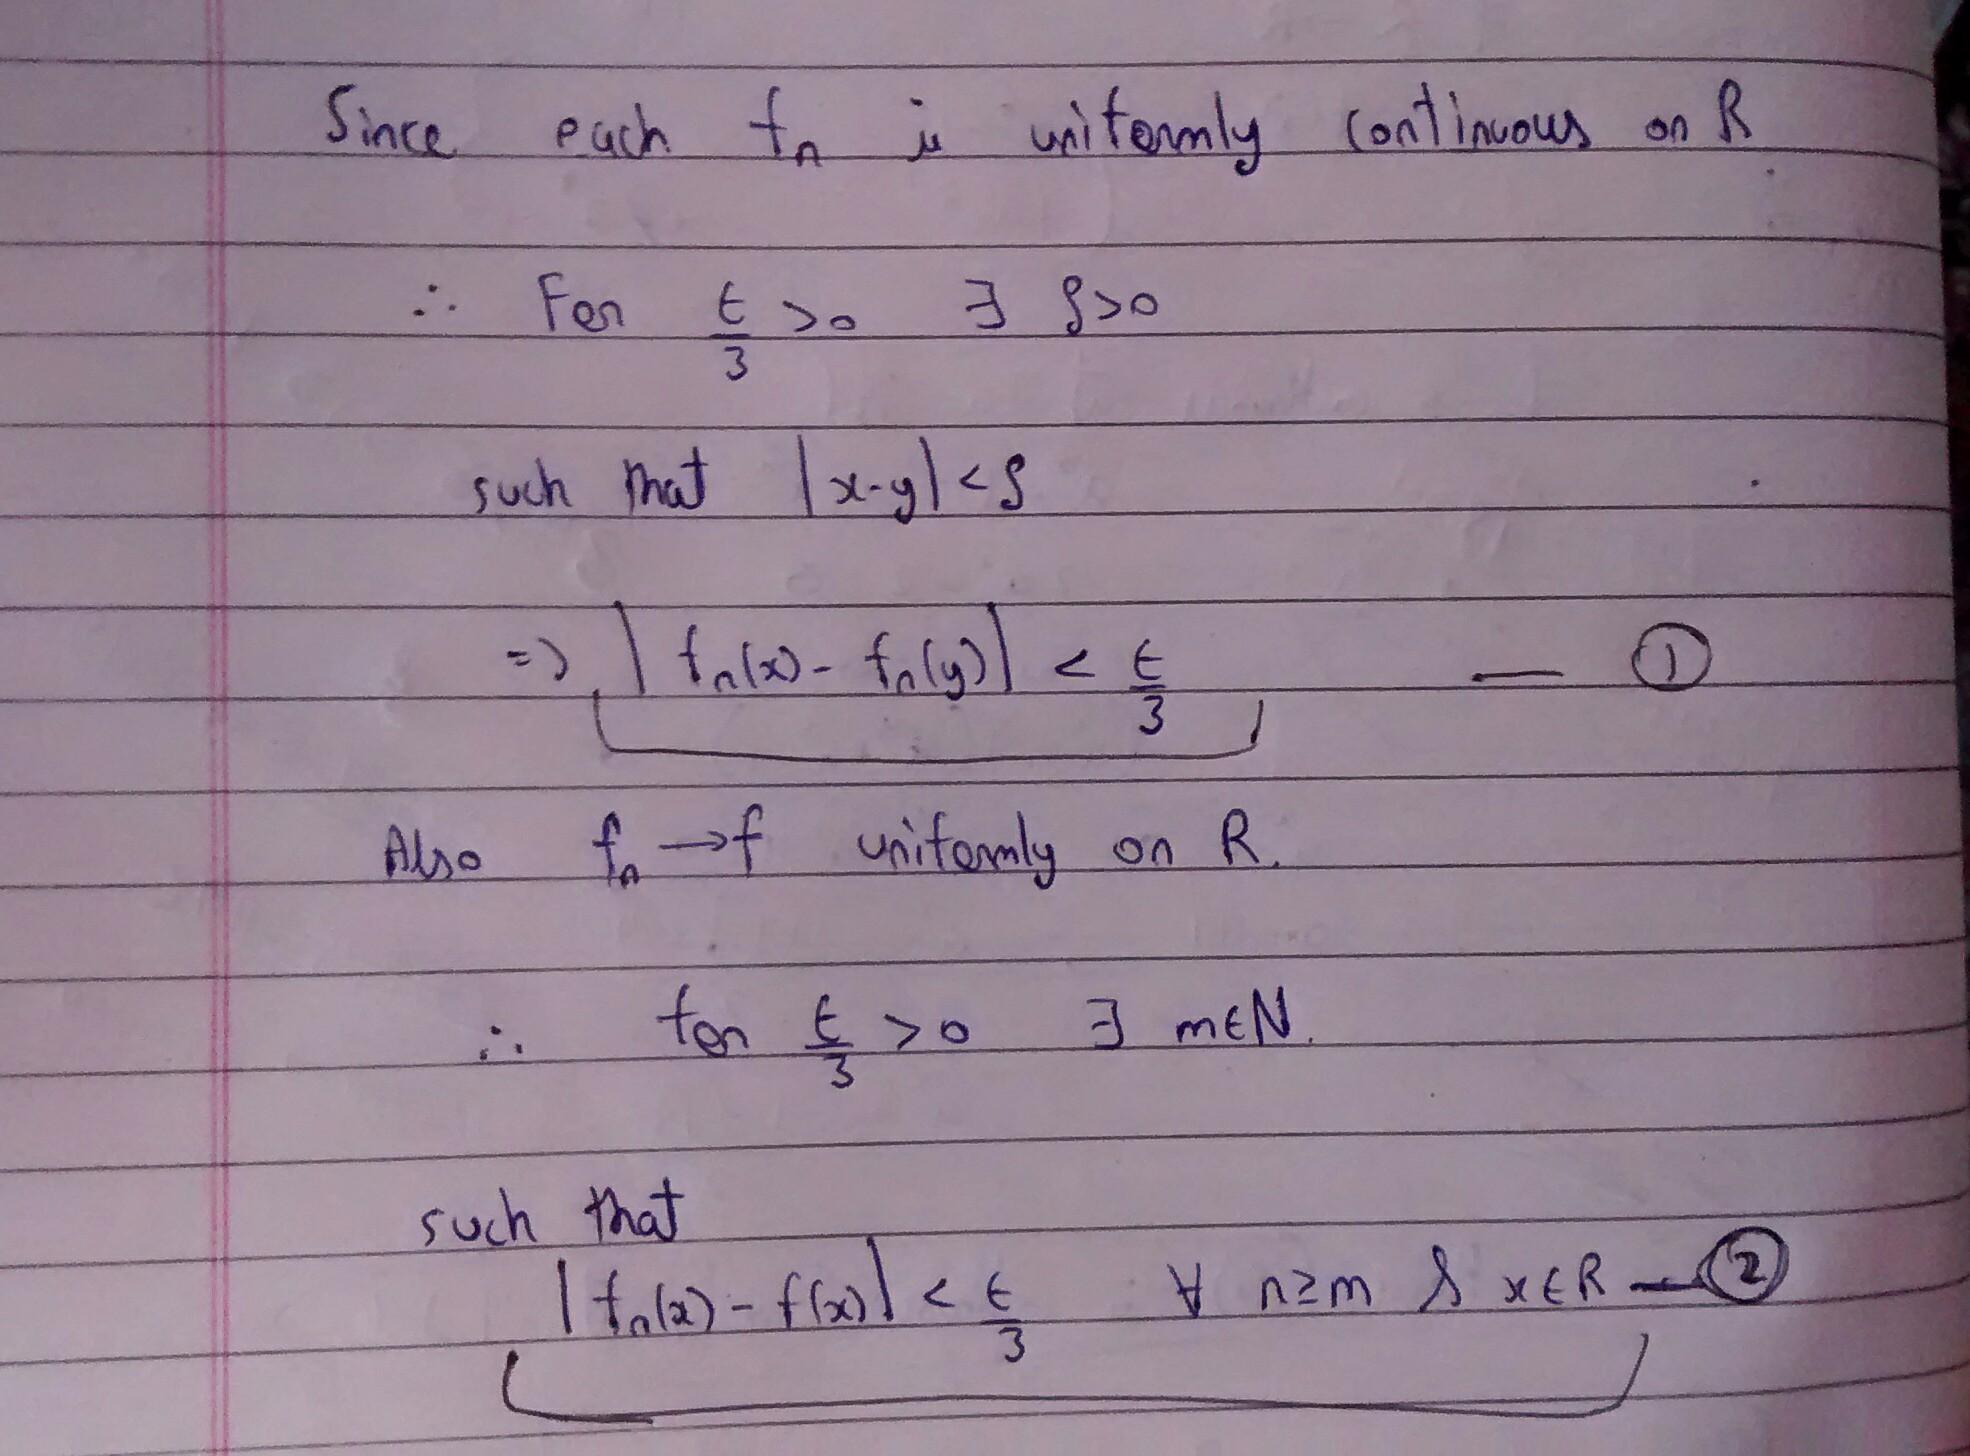 Since each fn is uniformly continuous on R.
∴ For ε/3 >0 ∃ δ>0
such that |x-y|<δ
=> |fn(x)- fn(y)| < ε/3 — ①
Also fn→f uniformly on R.
∴ for ε/3 >0 ∃ m∈N.
such that
|fn(x)-f(x)|< ε/3 ∀ n≥m & x∈R — ②